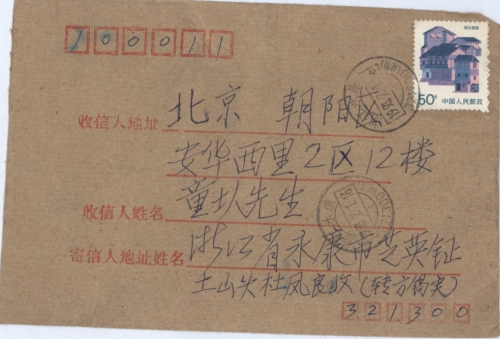 100011
50分 中国人民邮政
收信人地址 北京 朝阳区
安华西里2区12楼
收信人姓名 童 先生
寄信人地址姓名 浙江省永康市芝英
土山头杜凤良收(转方锡 )
321300